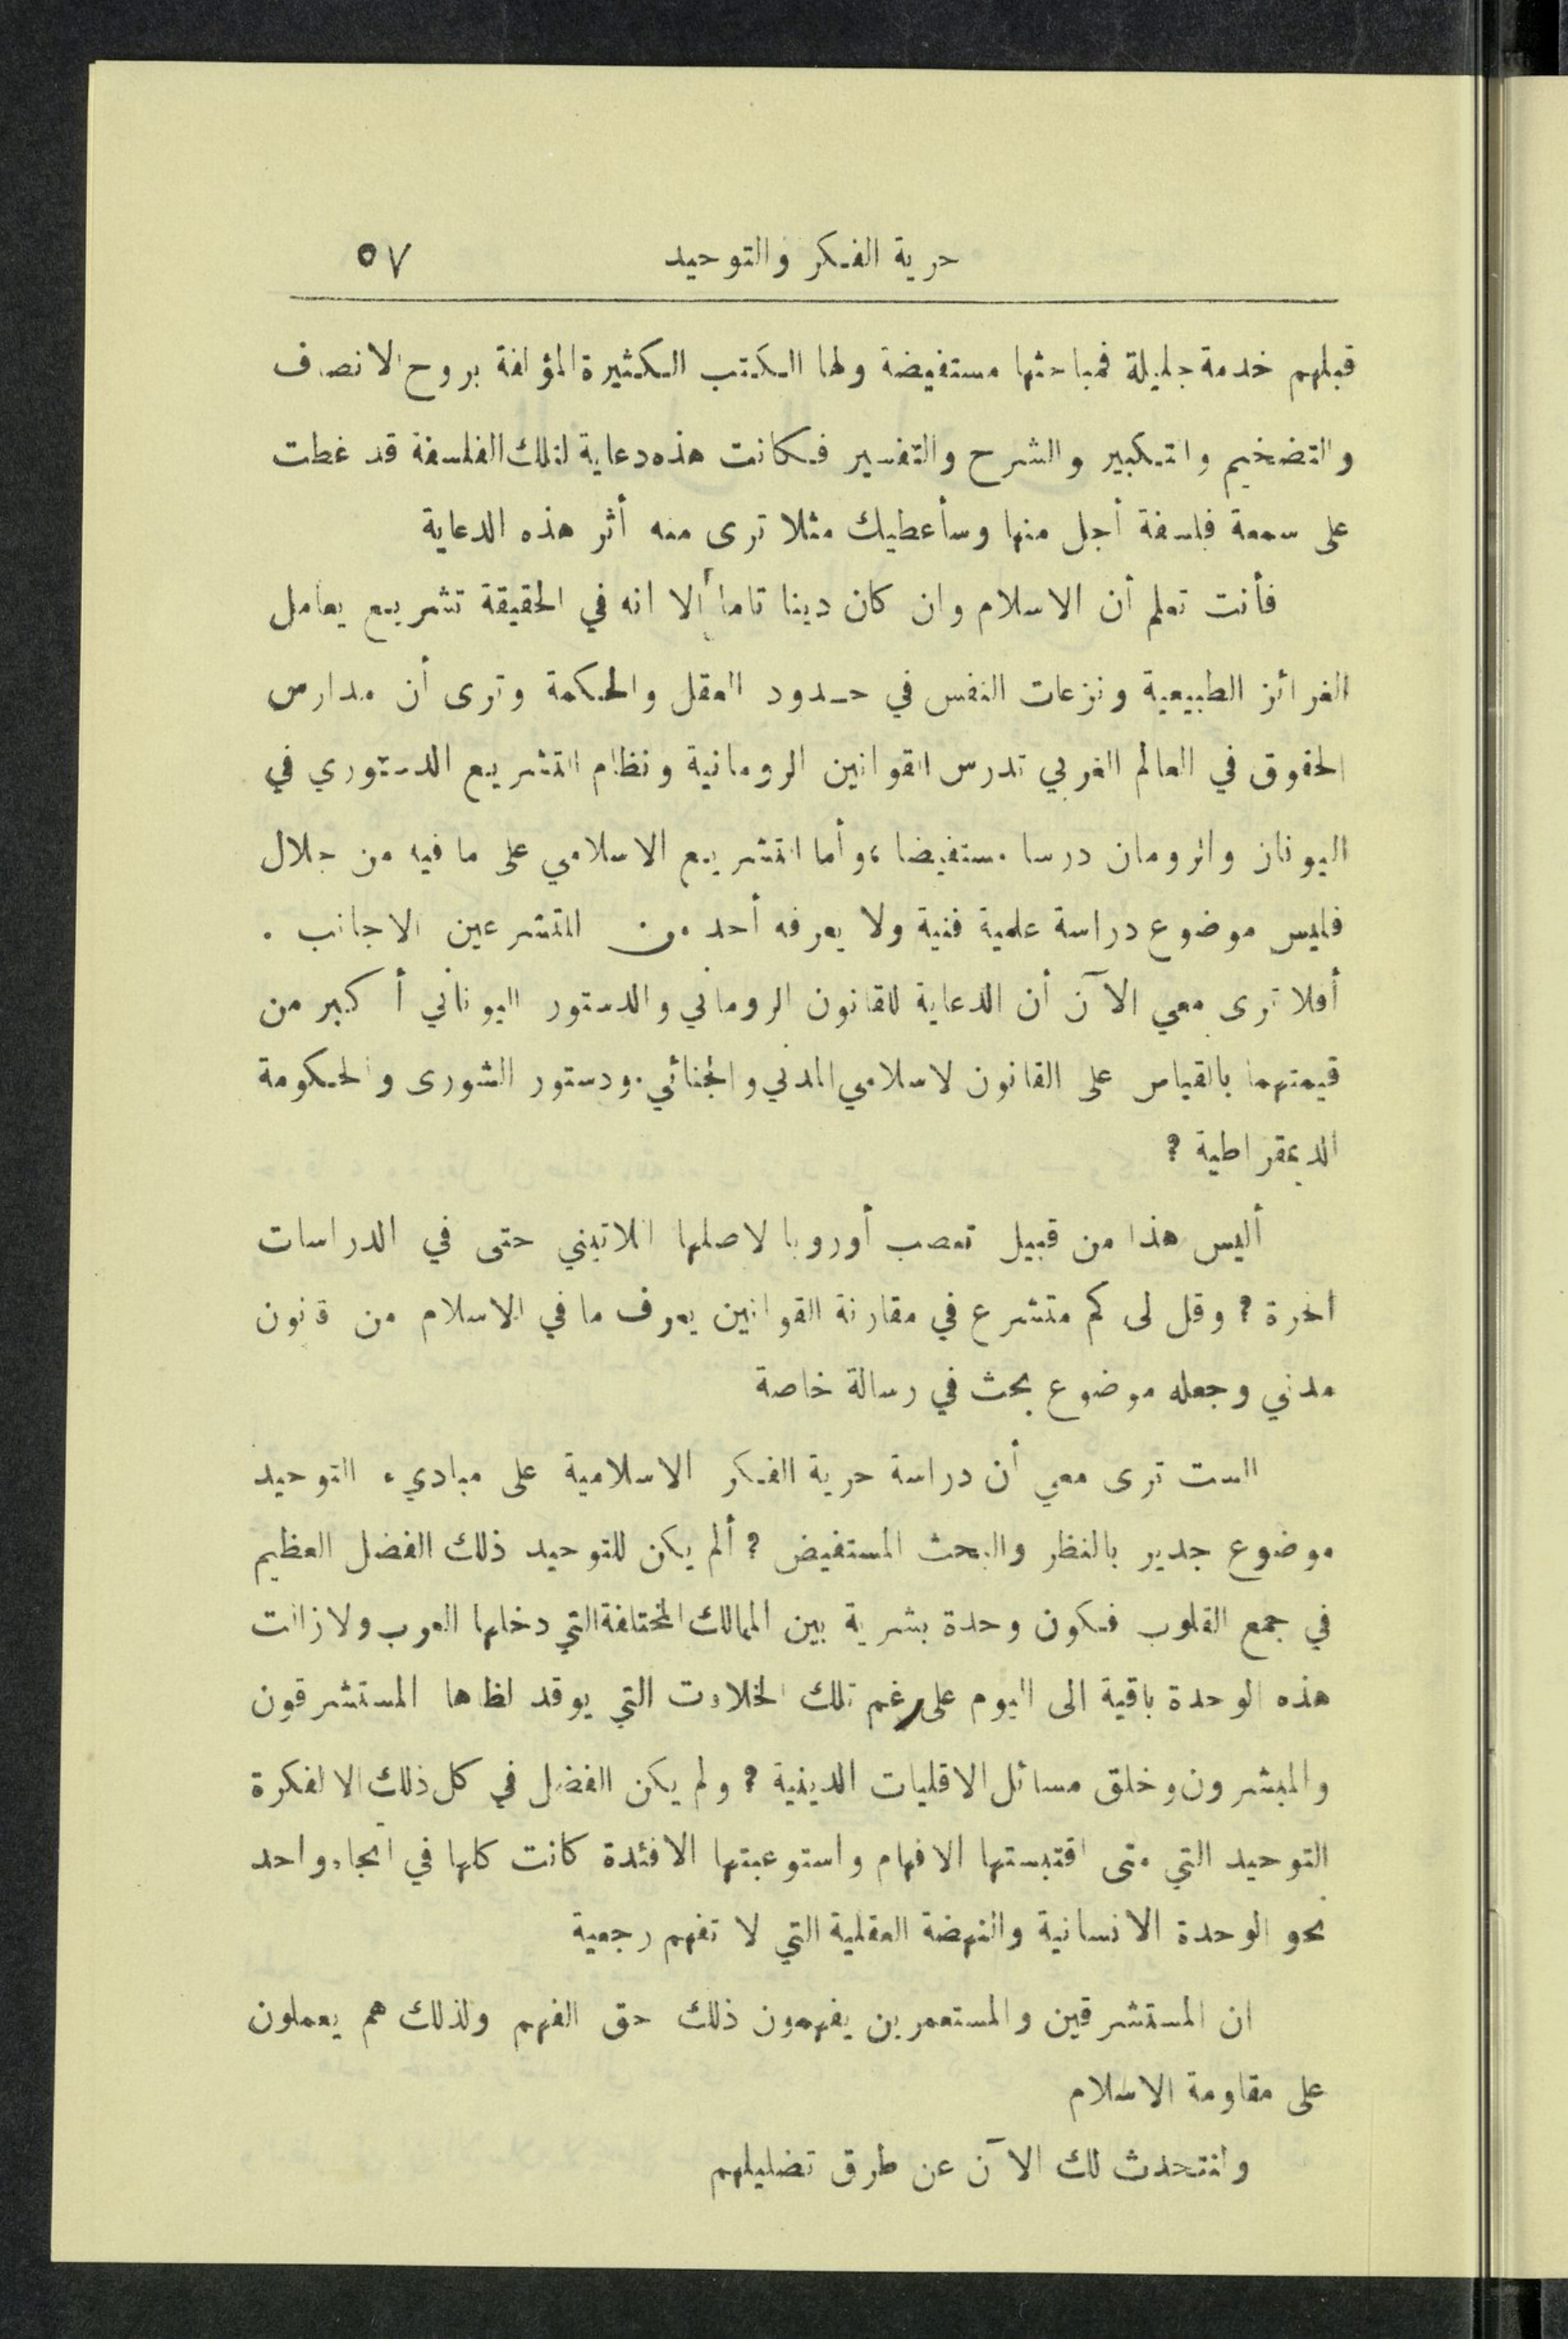 حرية الفكر والتوحيد ٥٧
قبلهم خدمة جليلة فمباحثها مستفيضة ولها الكتب الكثيرة المؤلفة بروح الانصاف
والتضخيم والتكبير والشرح والتفسير فكانت هذه دعاية لتلك الفلسفة قد غطت
على سمعة فلسفة أجل منها وسأعطيك مثلا ترى منه أثر هذه الدعاية
فأنت تعلم أن الاسلام وان كان دينا تاما ألا انه في الحقيقة تشريع يعامل
الغرائز الطبيعية ونزعات النفس في حدود العقل والحكمة وترى أن مدارس
الحقوق في العالم الغربي تدرس القوانين الرومانية ونظام التشريع الدستوري في
اليونان والرومان درسا مستفيضا ، وأما التشريع الاسلامي على ما فيه من جلال
فليس موضوع دراسة علمية فنية ولا يعرفه أحد من المتشرعين الاجانب .
أفلا ترى معي الآن أن الدعاية للقانون الروماني والدستور اليوناني أكبر من
قيمتهما بالقياس على القانون لاسلامي المدني والجنائي . ودستور الشورى والحكومة
الديمقراطية ؟
أليس هذا من قبيل تعصب أوروبا لاصلها اللاتيني حتى في الدراسات
الحرة ؟ وقل لى كم متشرع في مقارنة القوانين يعرف ما في الاسلام من قانون
مدني وجعله موضوع بحث في رسالة خاصة
الست ترى معي أن دراسة حرية الفكر الاسلامية على مباديء التوحيد
موضوع جدير بالنظر والبحث المستفيض ؟ ألم يكن للتوحيد ذلك الفضل العظيم
في جمع القلوب فكون وحدة بشرية بين الممالك المختلفة التي دخلها العرب ولا زالت
هذه الوحدة باقية الى اليوم على رغم تلك الخلافات التي يوقد لظاها المستشرقون
والمبشرون وخلق مسائل الاقليات الدينية ؟ ولم يكن الفضل في كل ذلك الا لفكرة
التوحيد التي متى اقتبستها الافهام واستوعبتها الافئدة كانت كلها في اتجاه واحد
نحو الوحدة الانسانية والنهضة العقلية التي لا تفهم رجعية
ان المستشرقين والمستعمرين يفهمون ذلك حق الفهم ولذلك هم يعملون
على مقاومة الاسلام
ولنتحدث لك الآن عن طرق تضليلهم